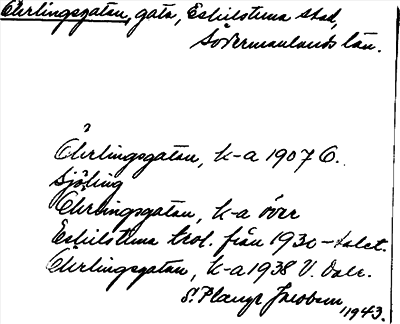 Åhrlingsgatan, gata, Eskilstuna stad,
Södermanlands län.
Åhrlingsgatan, k-a 1907 O.
Sjöling
Åhrlingsgatan, k-a över
Eskilstuna trol. från 1930-talet.
Åhrlingsgatan, k-a 1938 V.
S. Jacobson, 1943.